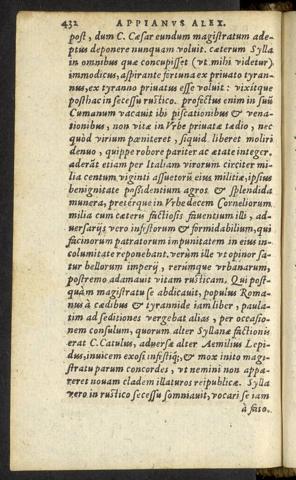 432 APPIANVS ALEX.
post, dum C. Cæsar eundum magistratum ade-
ptus deponere nunquam voluit. cæterum Sylla
in omnibus quæ concupisset (vt mihi videtur)
immodicus, aspirante fortuna ex priuato tyran-
nus, ex tyranno priuatus esse voluit: vixitque
posthac in secessu rustico. profectus enim in suũ
Cumanum vacauit ibi piscationibus & vena-
tionibus, non vitæ in Vrbe priuatæ tædio, nec
quòd virium pœniteret, siquid liberet moliri
denuo, quippe robore pariter ac ætate integer.
aderãt etiam per Italiam virorum circiter mi-
lia centum viginti assuetorũ eius militiæ, ipsius
benignitate possidentium agros & splendida
munera, præterque in Vrbe decem Corneliorum
milia cum cæteris factiosis fauentium illi, ad-
uersarijs vero infestorum & formidabilium, qui
facinorum patratorum impunitatem in eius in-
columitate reponebant. verùm ille vt opinor sa-
tur bellorum imperij, rerumque vrbanarum,
postremo adamauit vitam rusticam. Qui post-
quàm magistratu se abdicauit, populus Roma-
nus à cædibus & tyrannide iam liber, paula-
tim ad seditiones vergebat alias, per occasio-
nem consulum, quorum alter Syllanæ factionis
erat C. Catulus, aduersæ alter Aemilius Lepi-
dus, inuicem exosi infestiq;, & mox inito magi-
stratu parum concordes, vt nemini non appa-
reret nouam cladem illaturos reipublicæ. Sylla
vero in rustico secessu somniauit, vocari se iam
à fato.